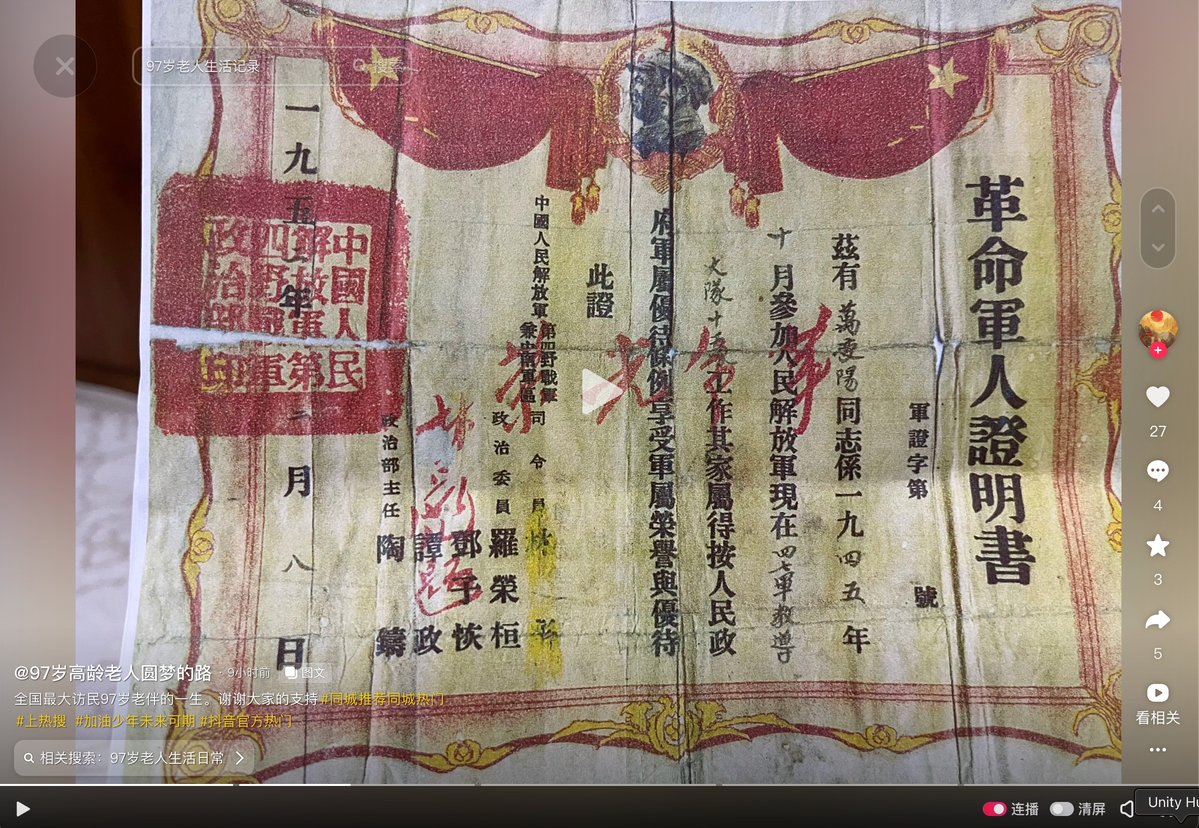 97岁老人生活记录
革命軍人證明書
軍證字第 號
茲有萬慶陽同志係一九四五年
十月參加人民解放軍現在四七軍教導
大隊十 工作其家屬得按人民政
府軍屬優待條例享受軍屬榮譽與優待
此證
中國人民解放軍第四野戰軍
兼中南軍區
司令員林彪
政治委員羅榮桓
鄧子恢
譚政
政治部主任陶鑄
一九五一年二月八日
中國人民
解放軍第
四野戰軍
政治部印
光榮
@97岁高龄老人圆梦的路 · 9小时前 图文
全国最大访民97岁老伴的一生。谢谢大家的支持 #同城推荐同城热门
#上热搜 #加油少年未来可期 #抖音官方热门
相关搜索：97岁老人生活日常
27
4
3
5
看相关
连播
清屏
Unity Hu